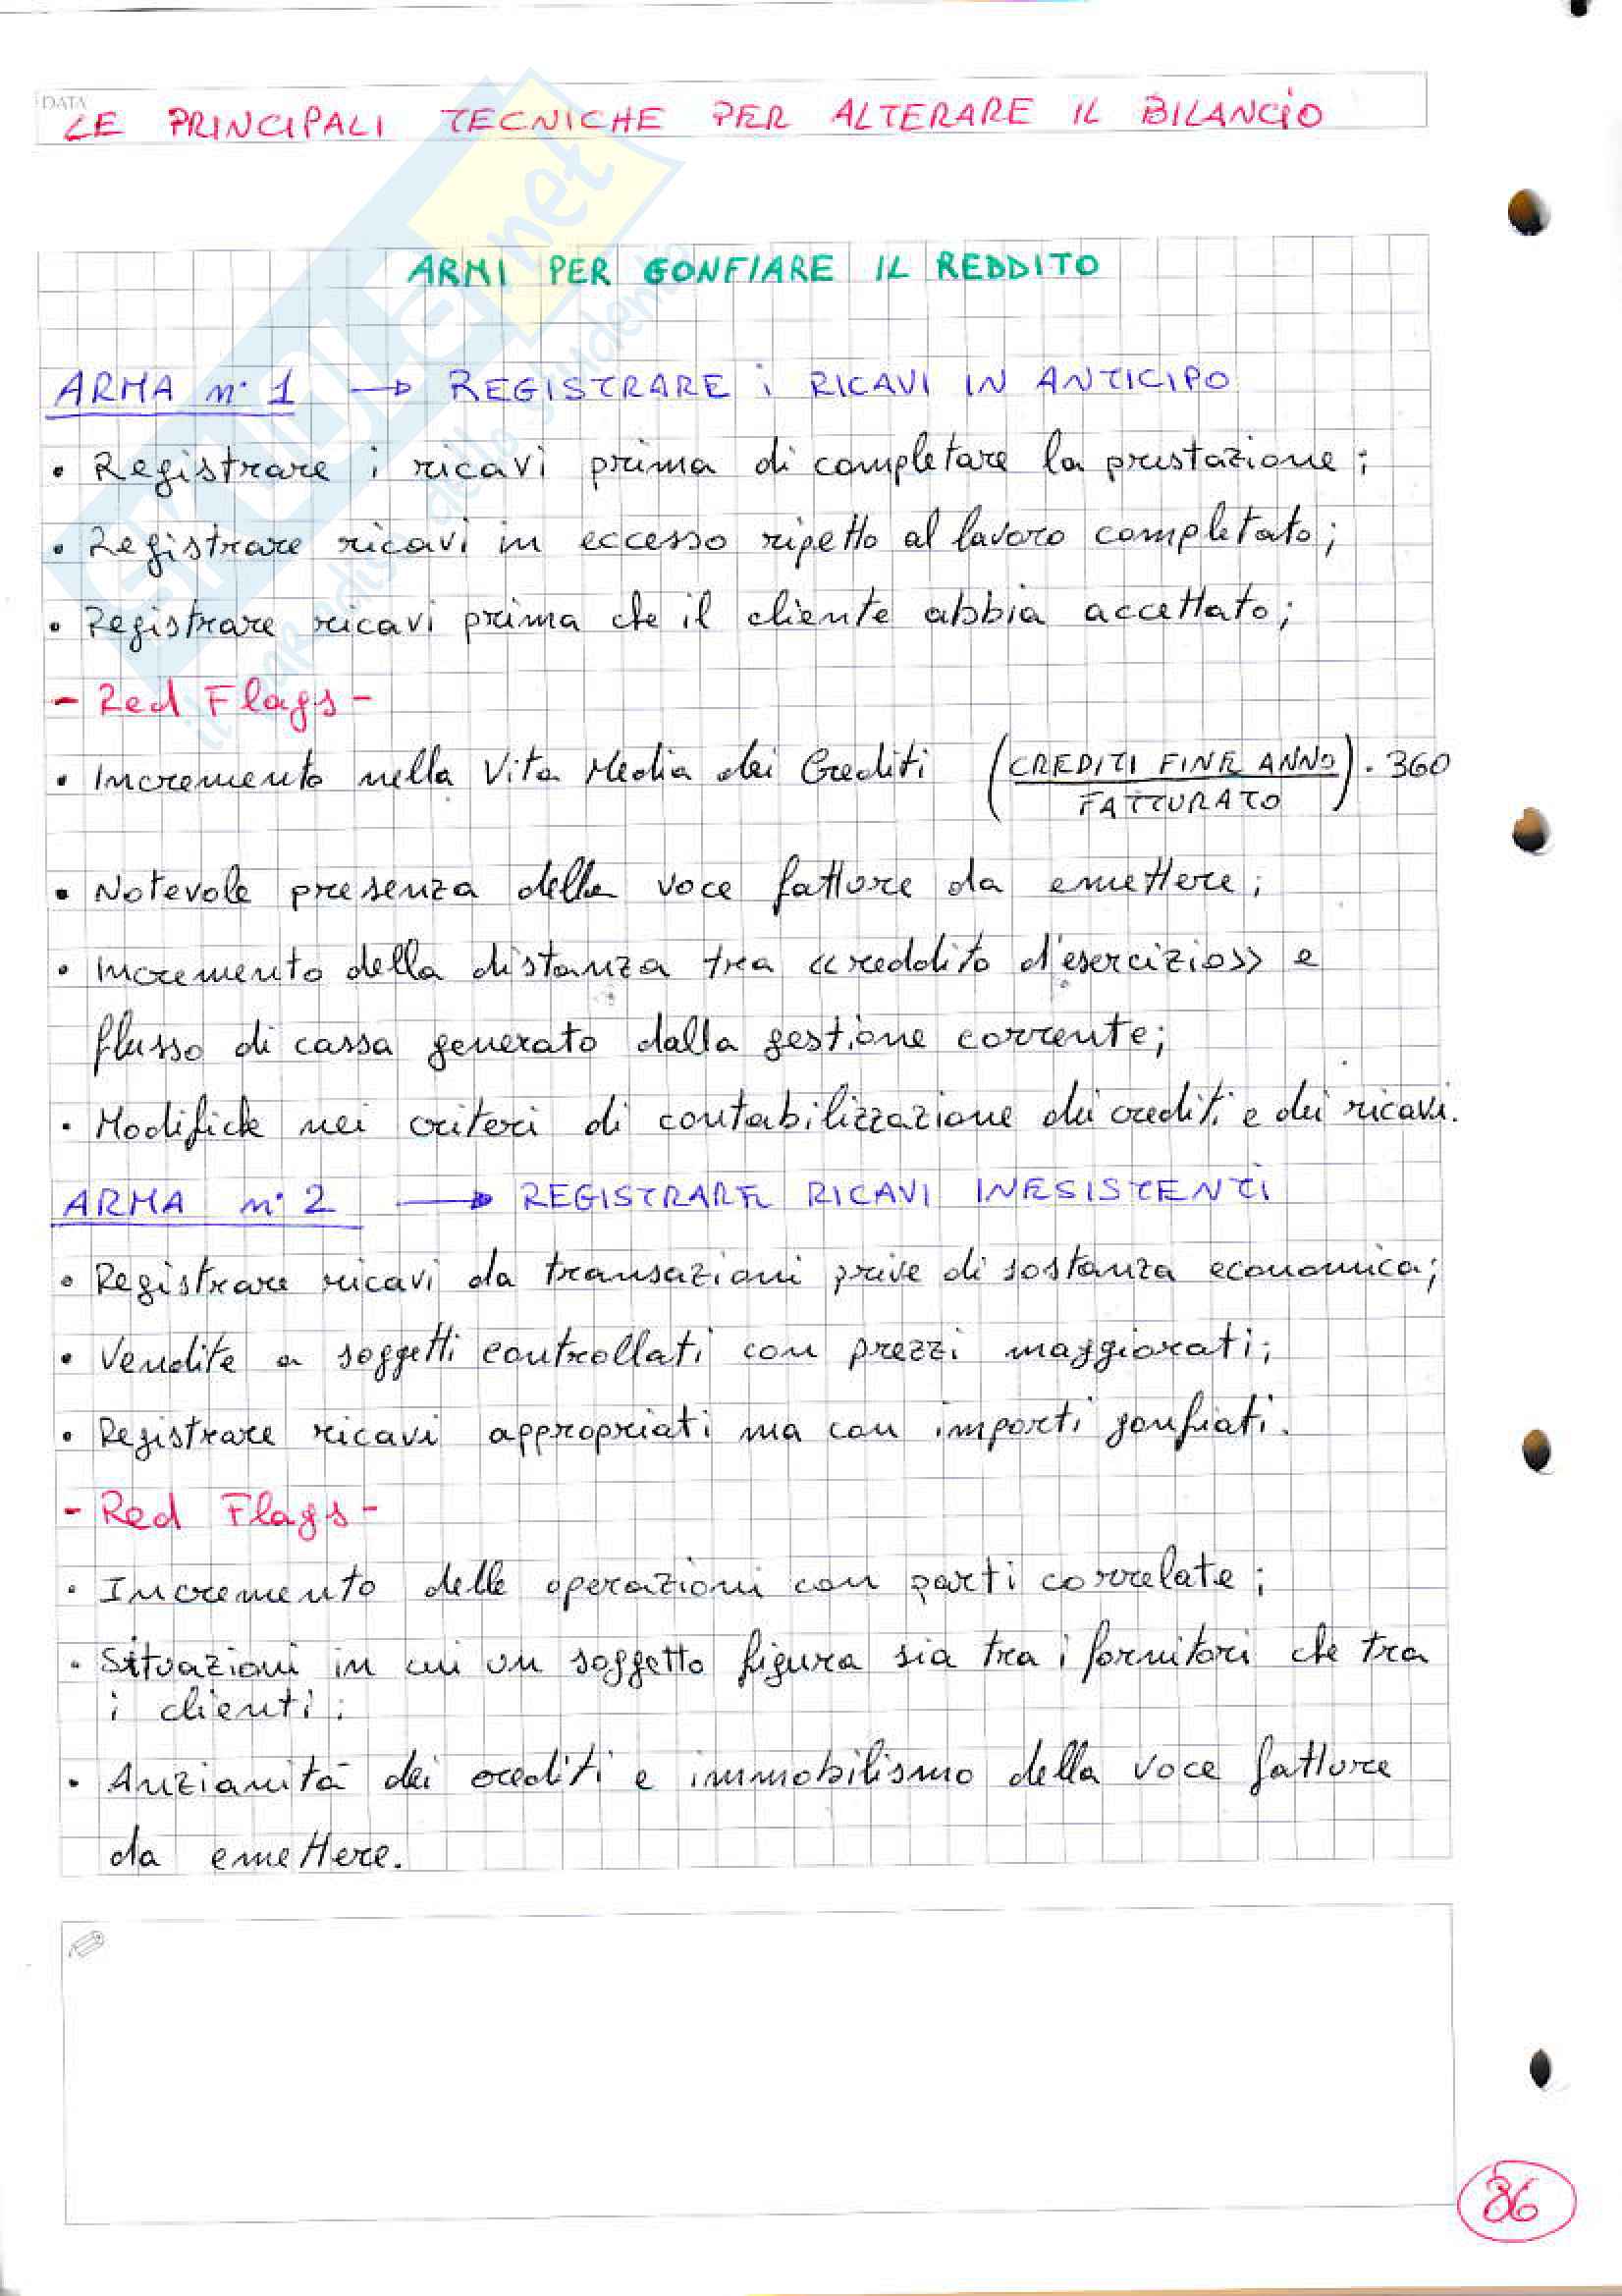 DATA
LE PRINCIPALI TECNICHE PER ALTERARE IL BILANCIO
ARMI PER GONFIARE IL REDDITO
ARMA n° 1 → REGISTRARE i RICAVI IN ANTICIPO
• Registrare i ricavi prima di completare la prestazione;
• Registrare ricavi in eccesso ripetto al lavoro completato;
• Registrare ricavi prima che il cliente abbia accettato;
- Red Flags -
• Incremento nella Vita Media dei Crediti (CREDITI FINE ANNO / FATTURATO) · 360
• Notevole presenza della voce fatture da emettere;
• Incremento della distanza tra «reddito d'esercizio» e
flusso di cassa generato dalla gestione corrente;
• Modifiche nei criteri di contabilizzazione dei crediti e dei ricavi.
ARMA n° 2 → REGISTRARE RICAVI INESISTENTI
• Registrare ricavi da transazioni prive di sostanza economica;
• Vendite a soggetti controllati con prezzi maggiorati;
• Registrare ricavi appropriati ma con importi gonfiati.
- Red Flags -
• Incremento delle operazioni con parti correlate;
• Situazioni in cui un soggetto figura sia tra i fornitori che tra
i clienti;
• Anzianità dei crediti e immobilismo della voce fatture
da emettere.
86
SKUOLA.net
il paradiso dello studente